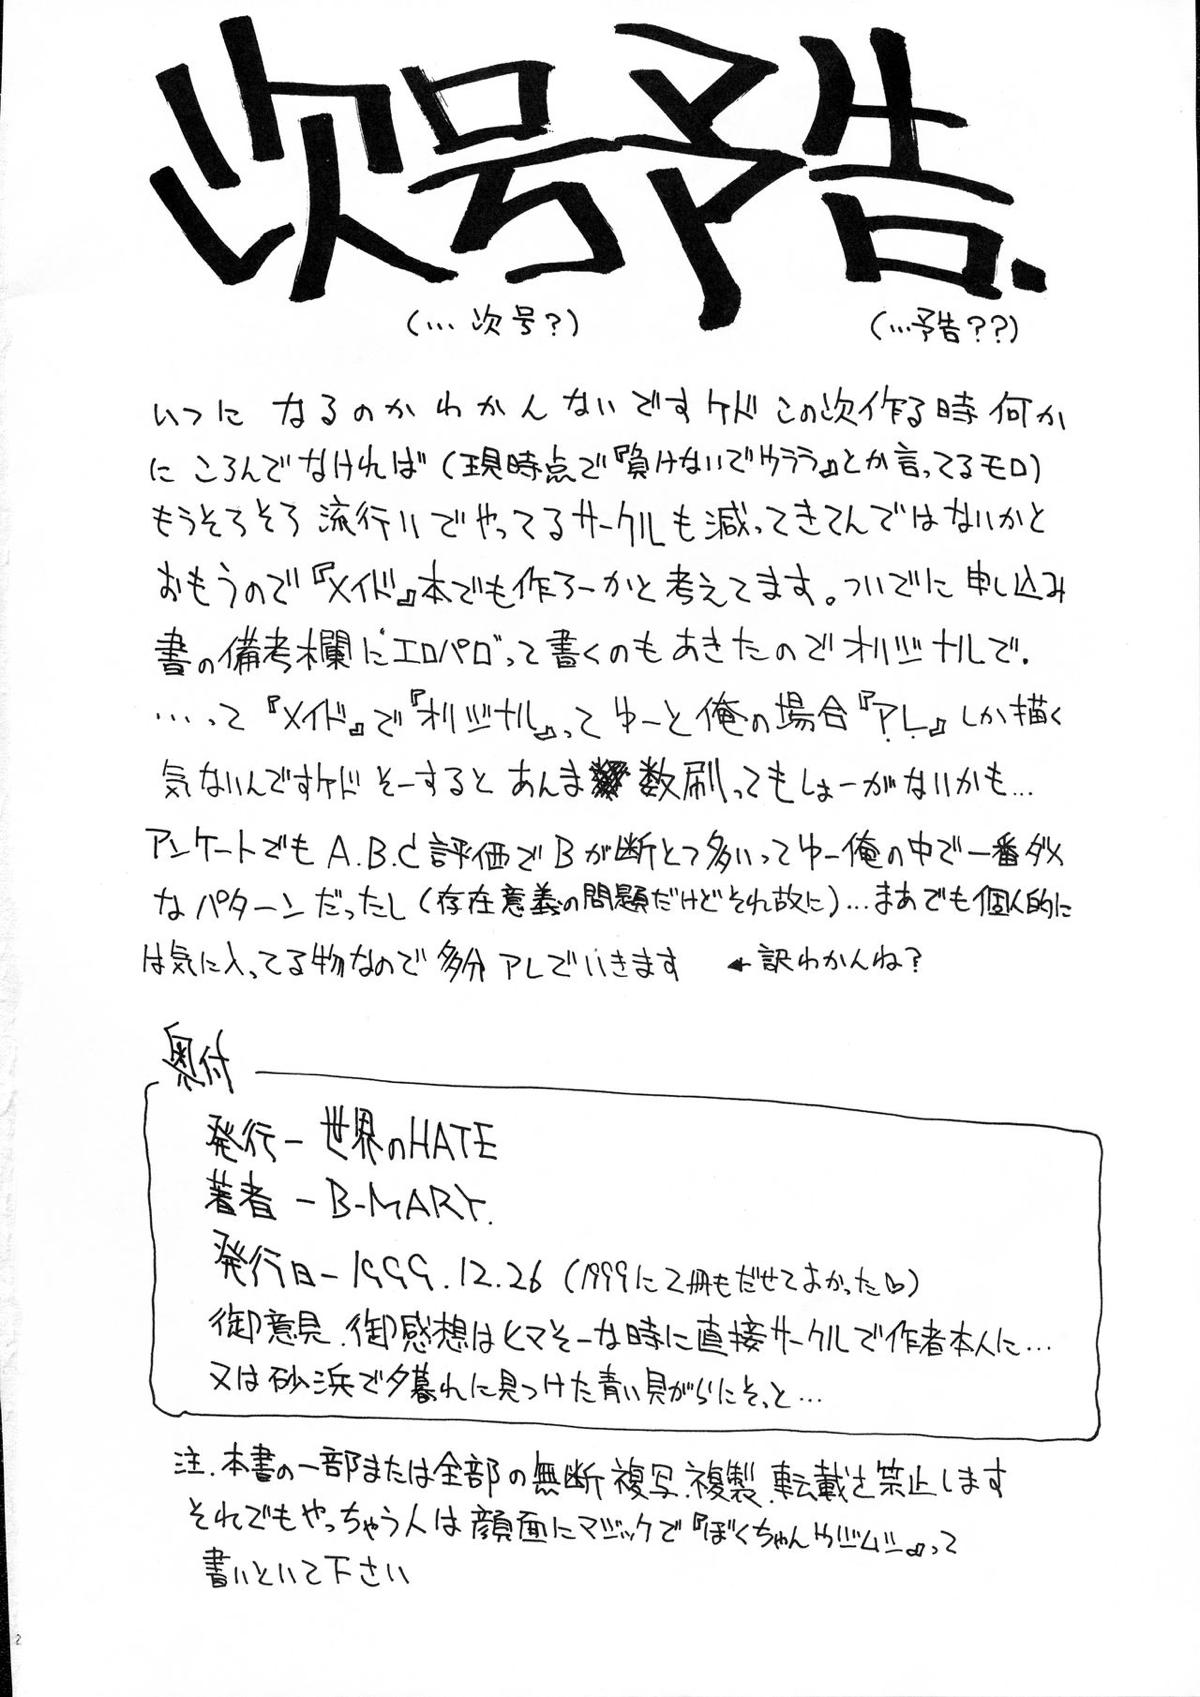 次号予告.
(… 次号?) (…予告??)
いつに なるのかわかんないですケド この次作る時 何か
に ころんでなければ (現時点で『負けないでウララ』とか言ってるモロ)
もうそろそろ 流行りでやってるサークルも減ってきてんではないかと
おもうので『メイド』本でも作ろーかと考えてます。ついでに 申し込み
書の備考欄に"エロパロ"って書くのもあきたのでオリジナルで.
…って『メイド』で『オリジナル』ってゆーと俺の場合『アレ』しか描く
気ないんですケド そーすると あんま 数刷ってもしょーがないかも…
アンケートでも A.B.C評価でBが断とつ多いってゆー俺の中で一番ダメ
なパターンだったし (存在意義の問題だけどそれ故に)…まあでも個人的に
は気に入ってる物なので多分 アレでいきます ←訳わかんね?
奥付
発行ー 世界のHATE
著者 ー B-MARY.
発行日ー 1999.12.26 (1999に2冊もだせてよかった♡)
御意見.御感想はヒマそーな時に直接サークルで作者本人に…
又は砂浜で夕暮れに見つけた青い貝がらにそっと…
注.本書の一部または全部の無断複写.複製.転載を禁止します
それでもやっちゃう人は顔面にマジックで『ぼくちゃん』って
書いといて下さい
2